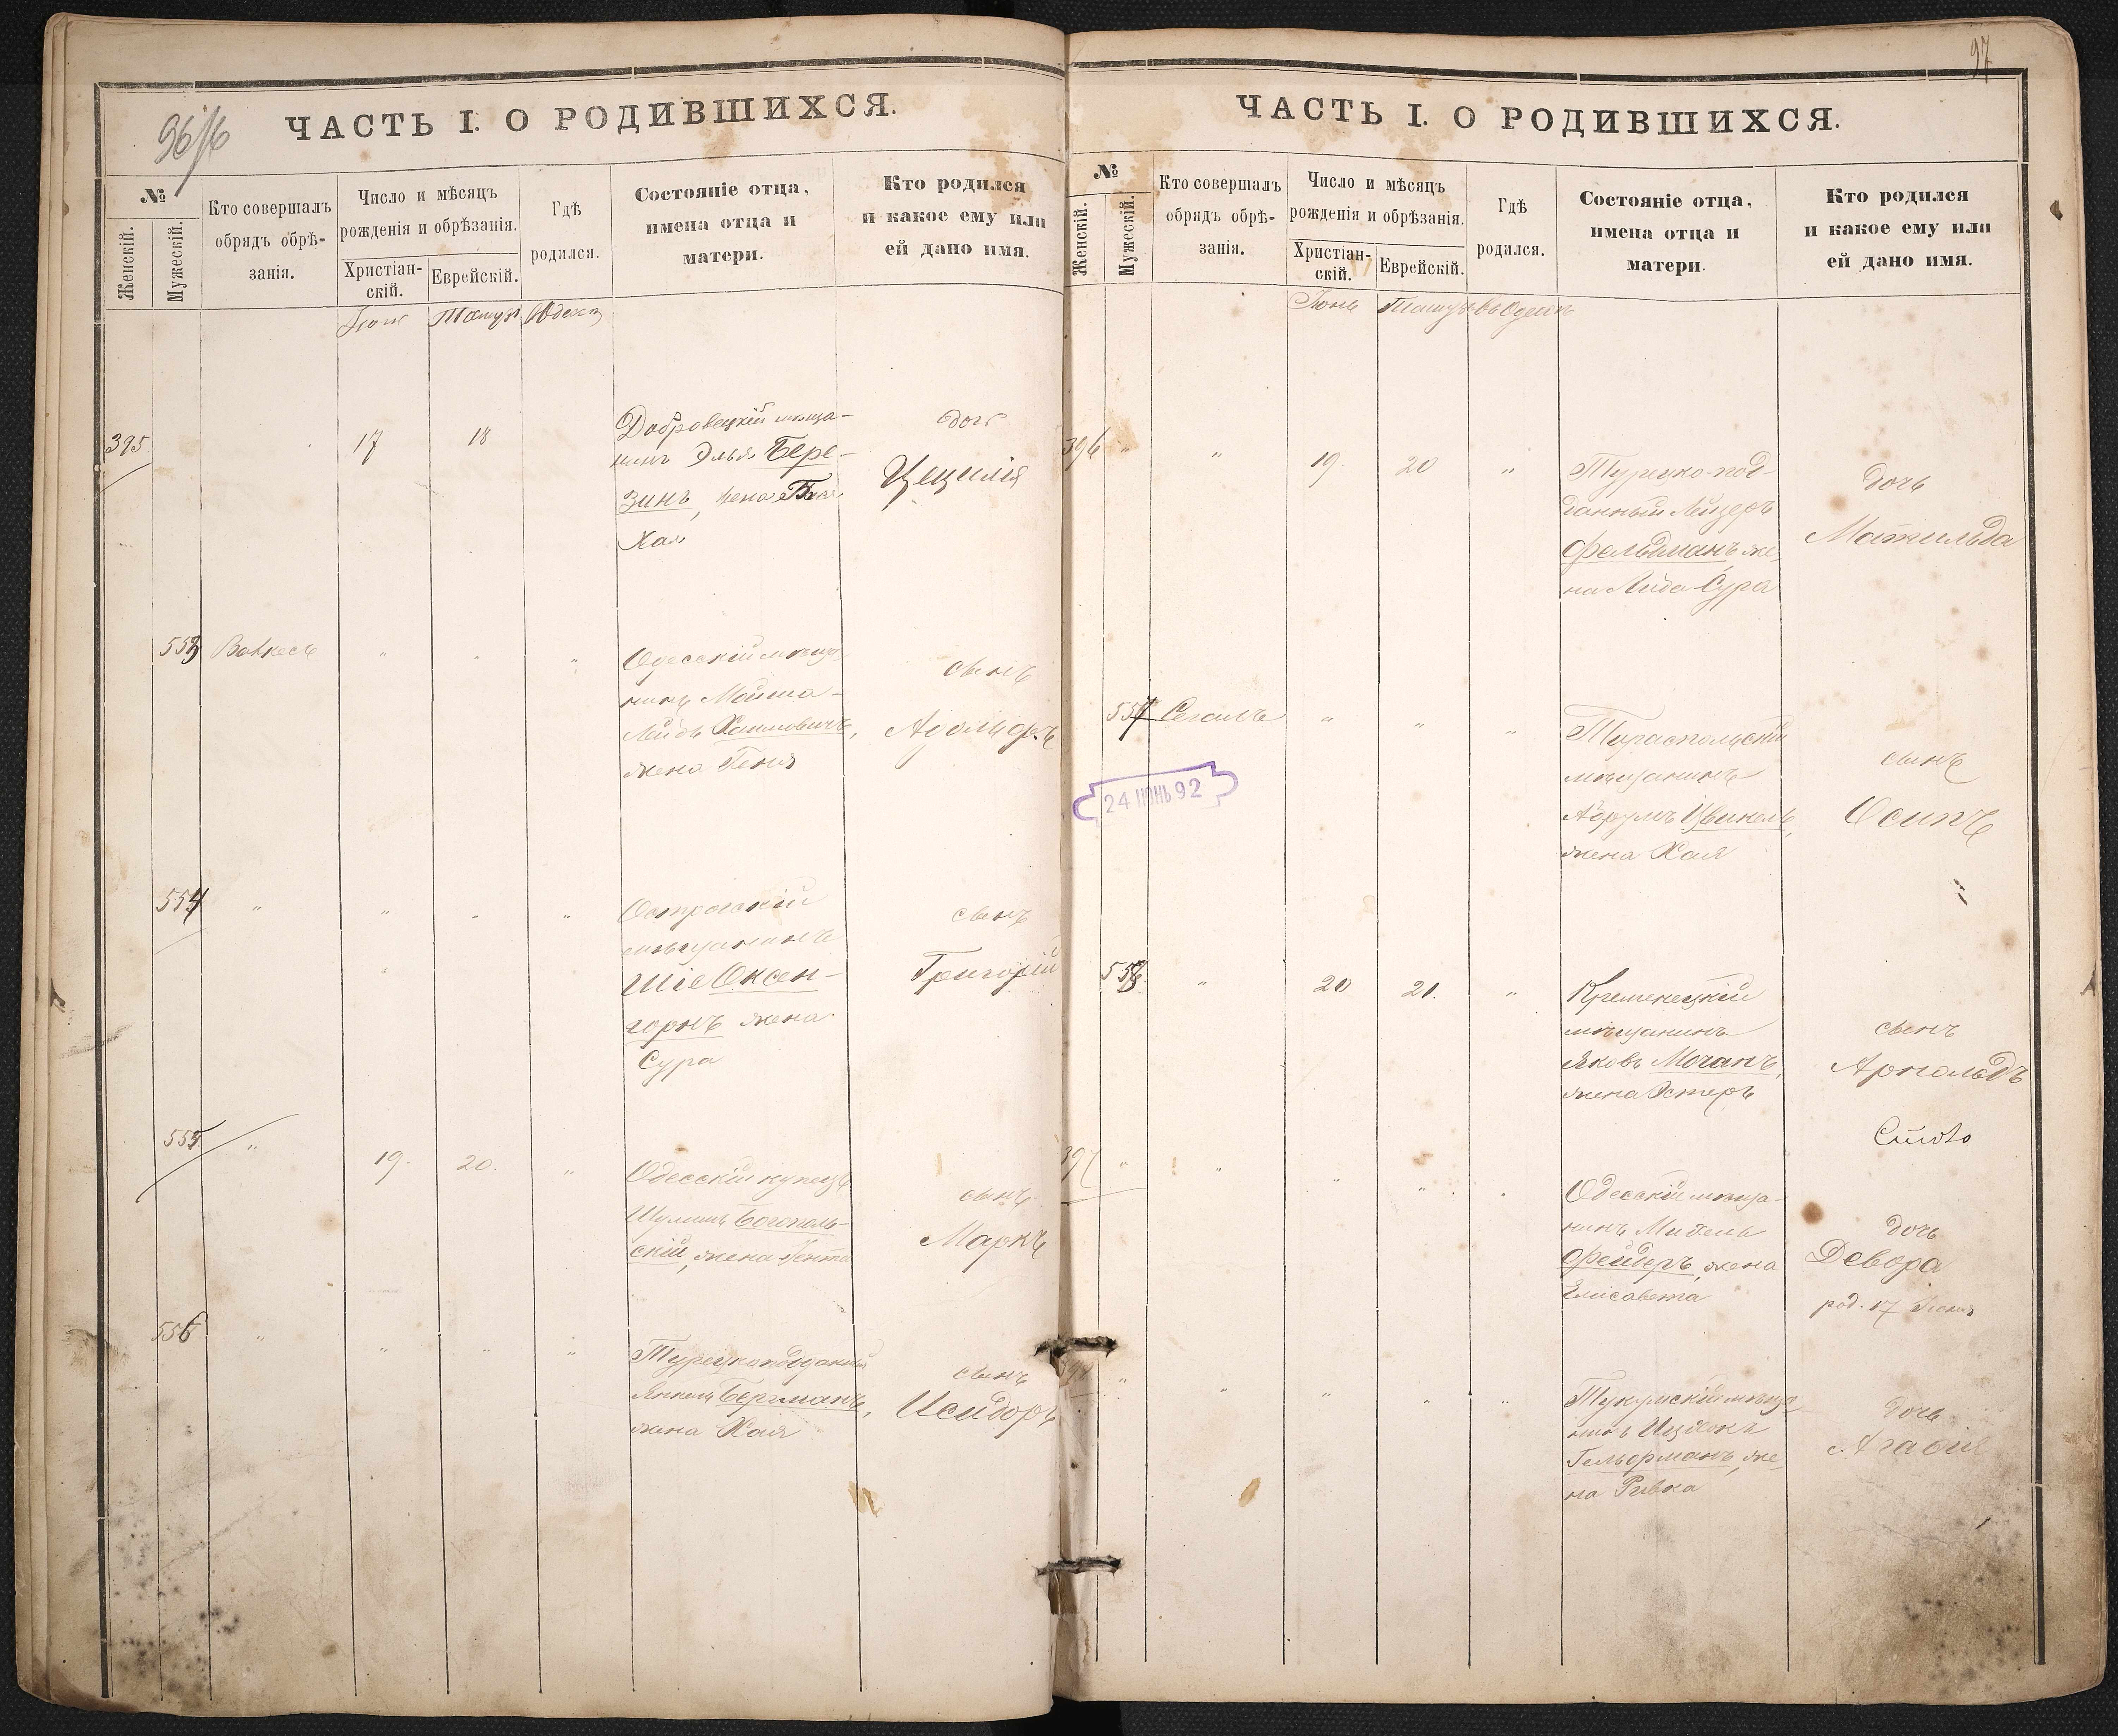 96/6
ЧАСТЬ I. О РОДИВШИХСЯ.
№
Женскій.
Мужескій.
Кто совершалъ
обрядъ обрѣ-
занія.
Число и мѣсяцъ
рожденія и обрѣзанія.
Христіан-
скій.
Еврейскій.
Гдѣ
родился.
Состояніе отца,
имена отца и
матери.
Кто родился
и какое ему или
ей дано имя.
395
17
18
нинъ Элья Бере-
зинъ, жена
Хая
дочь
Цецилія
553
"
"
"
Одесскій мѣща-
нинъ Мойша-
Лейбъ Хаимовичъ,
жена Геня
сынъ
Адольфъ
554
"
"
"
"
Острогскій
мѣщанинъ
Шіе Оксен-
горнъ жена
Сура
сынъ
Григорій
555
"
19.
20.
"
Одесскій купецъ
Шулимъ Богополь-
скій, жена
сынъ
Маркъ
556
"
"
"
"
Турецкоподданный
Янкель Бергманъ,
жена Хая
сынъ
Исидоръ
97
ЧАСТЬ I. О РОДИВШИХСЯ.
№
Женскій.
Мужескій.
Кто совершалъ
обрядъ обрѣ-
занія.
Число и мѣсяцъ
рожденія и обрѣзанія.
Христіан-
скій.
Еврейскій.
Гдѣ
родился.
Состояніе отца,
имена отца и
матери.
Кто родился
и какое ему или
ей дано имя.
Іюнь
Тамузъ
въ Одессѣ
396
"
"
19.
20
"
Турецко-под-
данный Лейзеръ
Фельдманъ, же-
на Сура
дочь
Матильда
557
Сегалъ
"
"
"
Тираспольскій
мѣщанинъ
Аврумъ Цвикель,
жена Хая
сынъ
Осипъ
24 ІЮНЬ 92
558
"
20
21.
"
Кременецкій
мѣщанинъ
Яковъ Моганъ,
жена Эстеръ
сынъ
Арнольдъ
397
"
"
"
"
Одесскій мѣща-
нинъ Михель
Фейдеръ, жена
Елисавета
дочь
Девора
род. 17 Іюня
"
"
"
"
"
нинъ Ицхокъ
Гельфманъ, же-
на Ривка
дочь